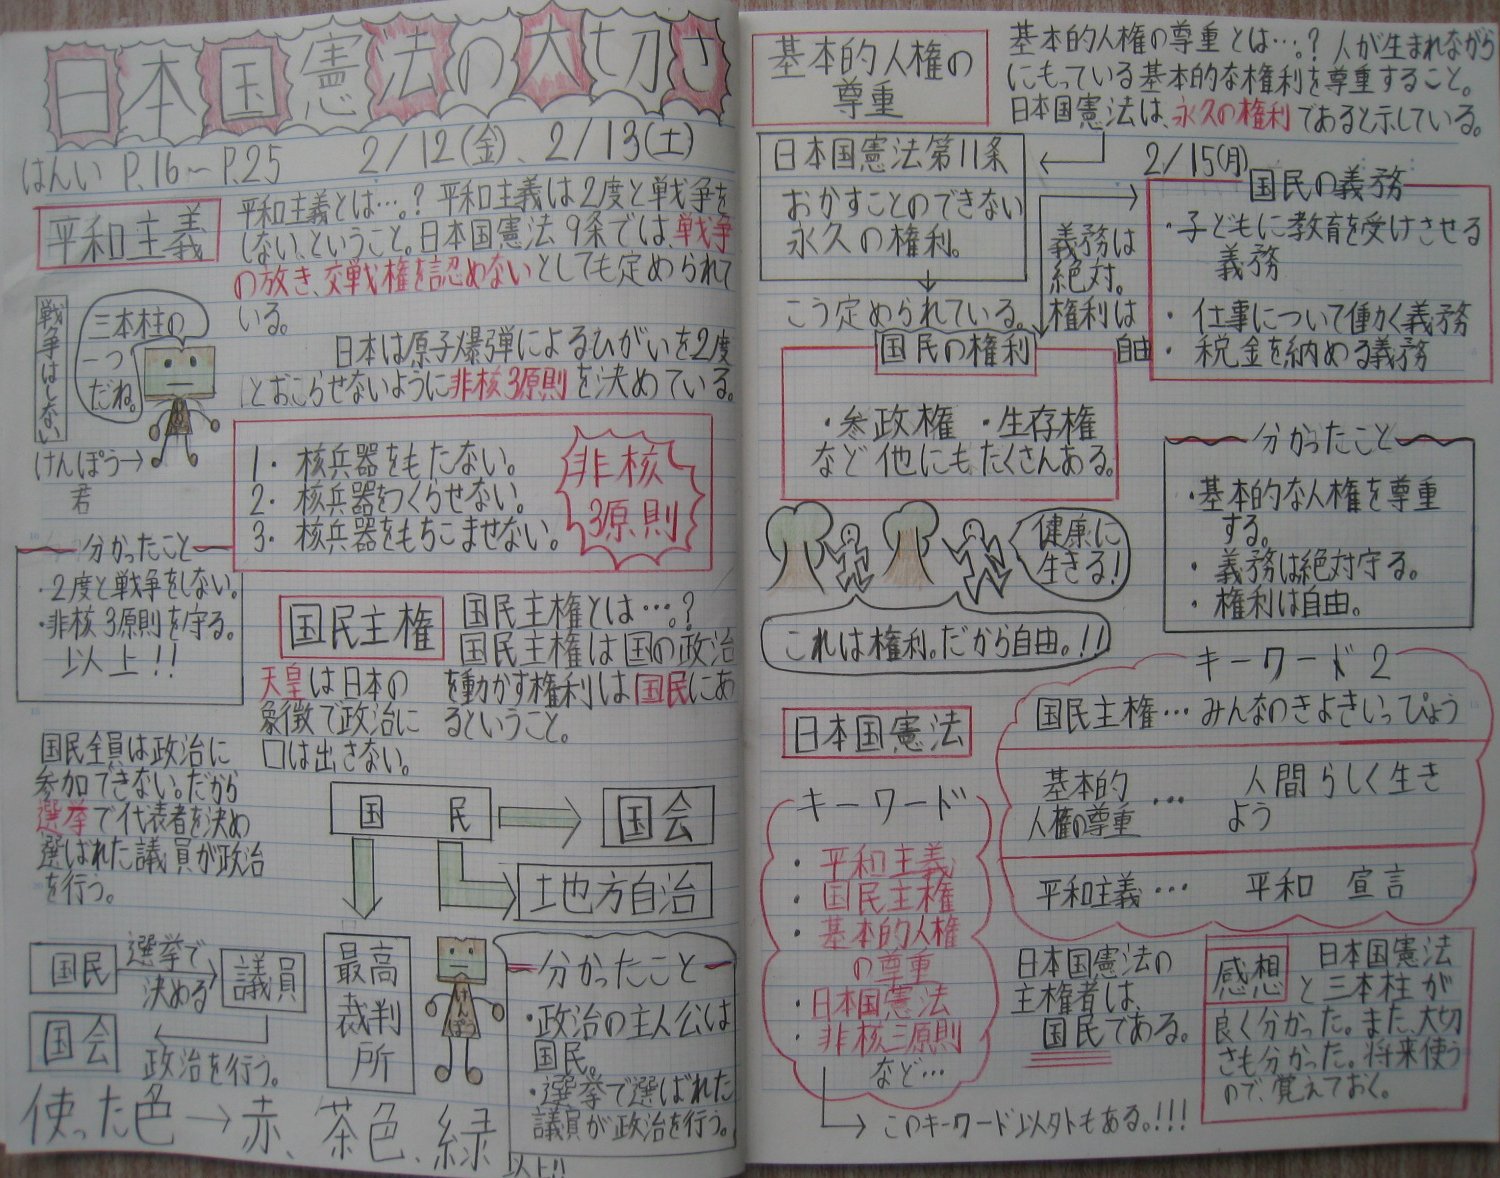 日本国憲法の大切さ
はんい P.16〜P.25
2/12(金)、2/13(土)
平和主義
平和主義とは…。? 平和主義は2度と戦争を
しない、ということ。日本国憲法9条では、戦争
の放き、交戦権を認めないとしても定められて
いる。
日本は原子爆弾によるひがいを2度
とおこらせないように非核3原則を決めている。
戦争はしない
三本柱の
一つ
だね。
けんぽう→
君
1. 核兵器をもたない。
2. 核兵器をつくらせない。
3. 核兵器をもちこませない。
非核
3原則
分かったこと
・2度と戦争をしない。
・非核3原則を守る。
以上!!
国民主権
国民主権とは…。?
国民主権は国の政治
を動かす権利は国民にあ
るということ。
天皇は日本の
象徴で政治に
口は出さない。
国民全員は政治に
参加できない。だから
選挙で代表者を決め
選ばれた議員が政治
を行う。
国 民
国会
地方自治
最高
裁判
所
国民
選挙で
決める
議員
国会
政治を行う。
けんぽう
分かったこと
・政治の主人公は
国民。
・選挙で選ばれた
議員が政治を行う。
以上!!
使った色→赤、茶色、緑
基本的人権の
尊重
基本的人権の尊重とは…。? 人が生まれながら
にもっている基本的な権利を尊重すること。
日本国憲法は、永久の権利であると示している。
日本国憲法第11条
おかすことのできない
永久の権利。
こう定められている。
2/15(月)
義務は
絶対。
権利は
自由
国民の義務
・子どもに教育を受けさせる
義務
・仕事について働く義務
・税金を納める義務
国民の権利
・参政権 ・生存権
など他にもたくさんある。
健康に
生きる!
これは権利。だから自由。!!
分かったこと
・基本的な人権を尊重
する。
・義務は絶対守る。
・権利は自由。
日本国憲法
キーワード
・平和主義
・国民主権
・基本的人権
の尊重
・日本国憲法
・非核三原則
など…
このキーワード以外もある。!!!
キーワード2
国民主権…みんなのきよきいっぴょう
基本的
人権の尊重… 人間らしく生き
よう
平和主義… 平和 宣言
日本国憲法の
主権者は、
国民である。
感想
日本国憲法
と三本柱が
良く分かった。また、大切
さも分かった。将来使う
ので、覚えておく。